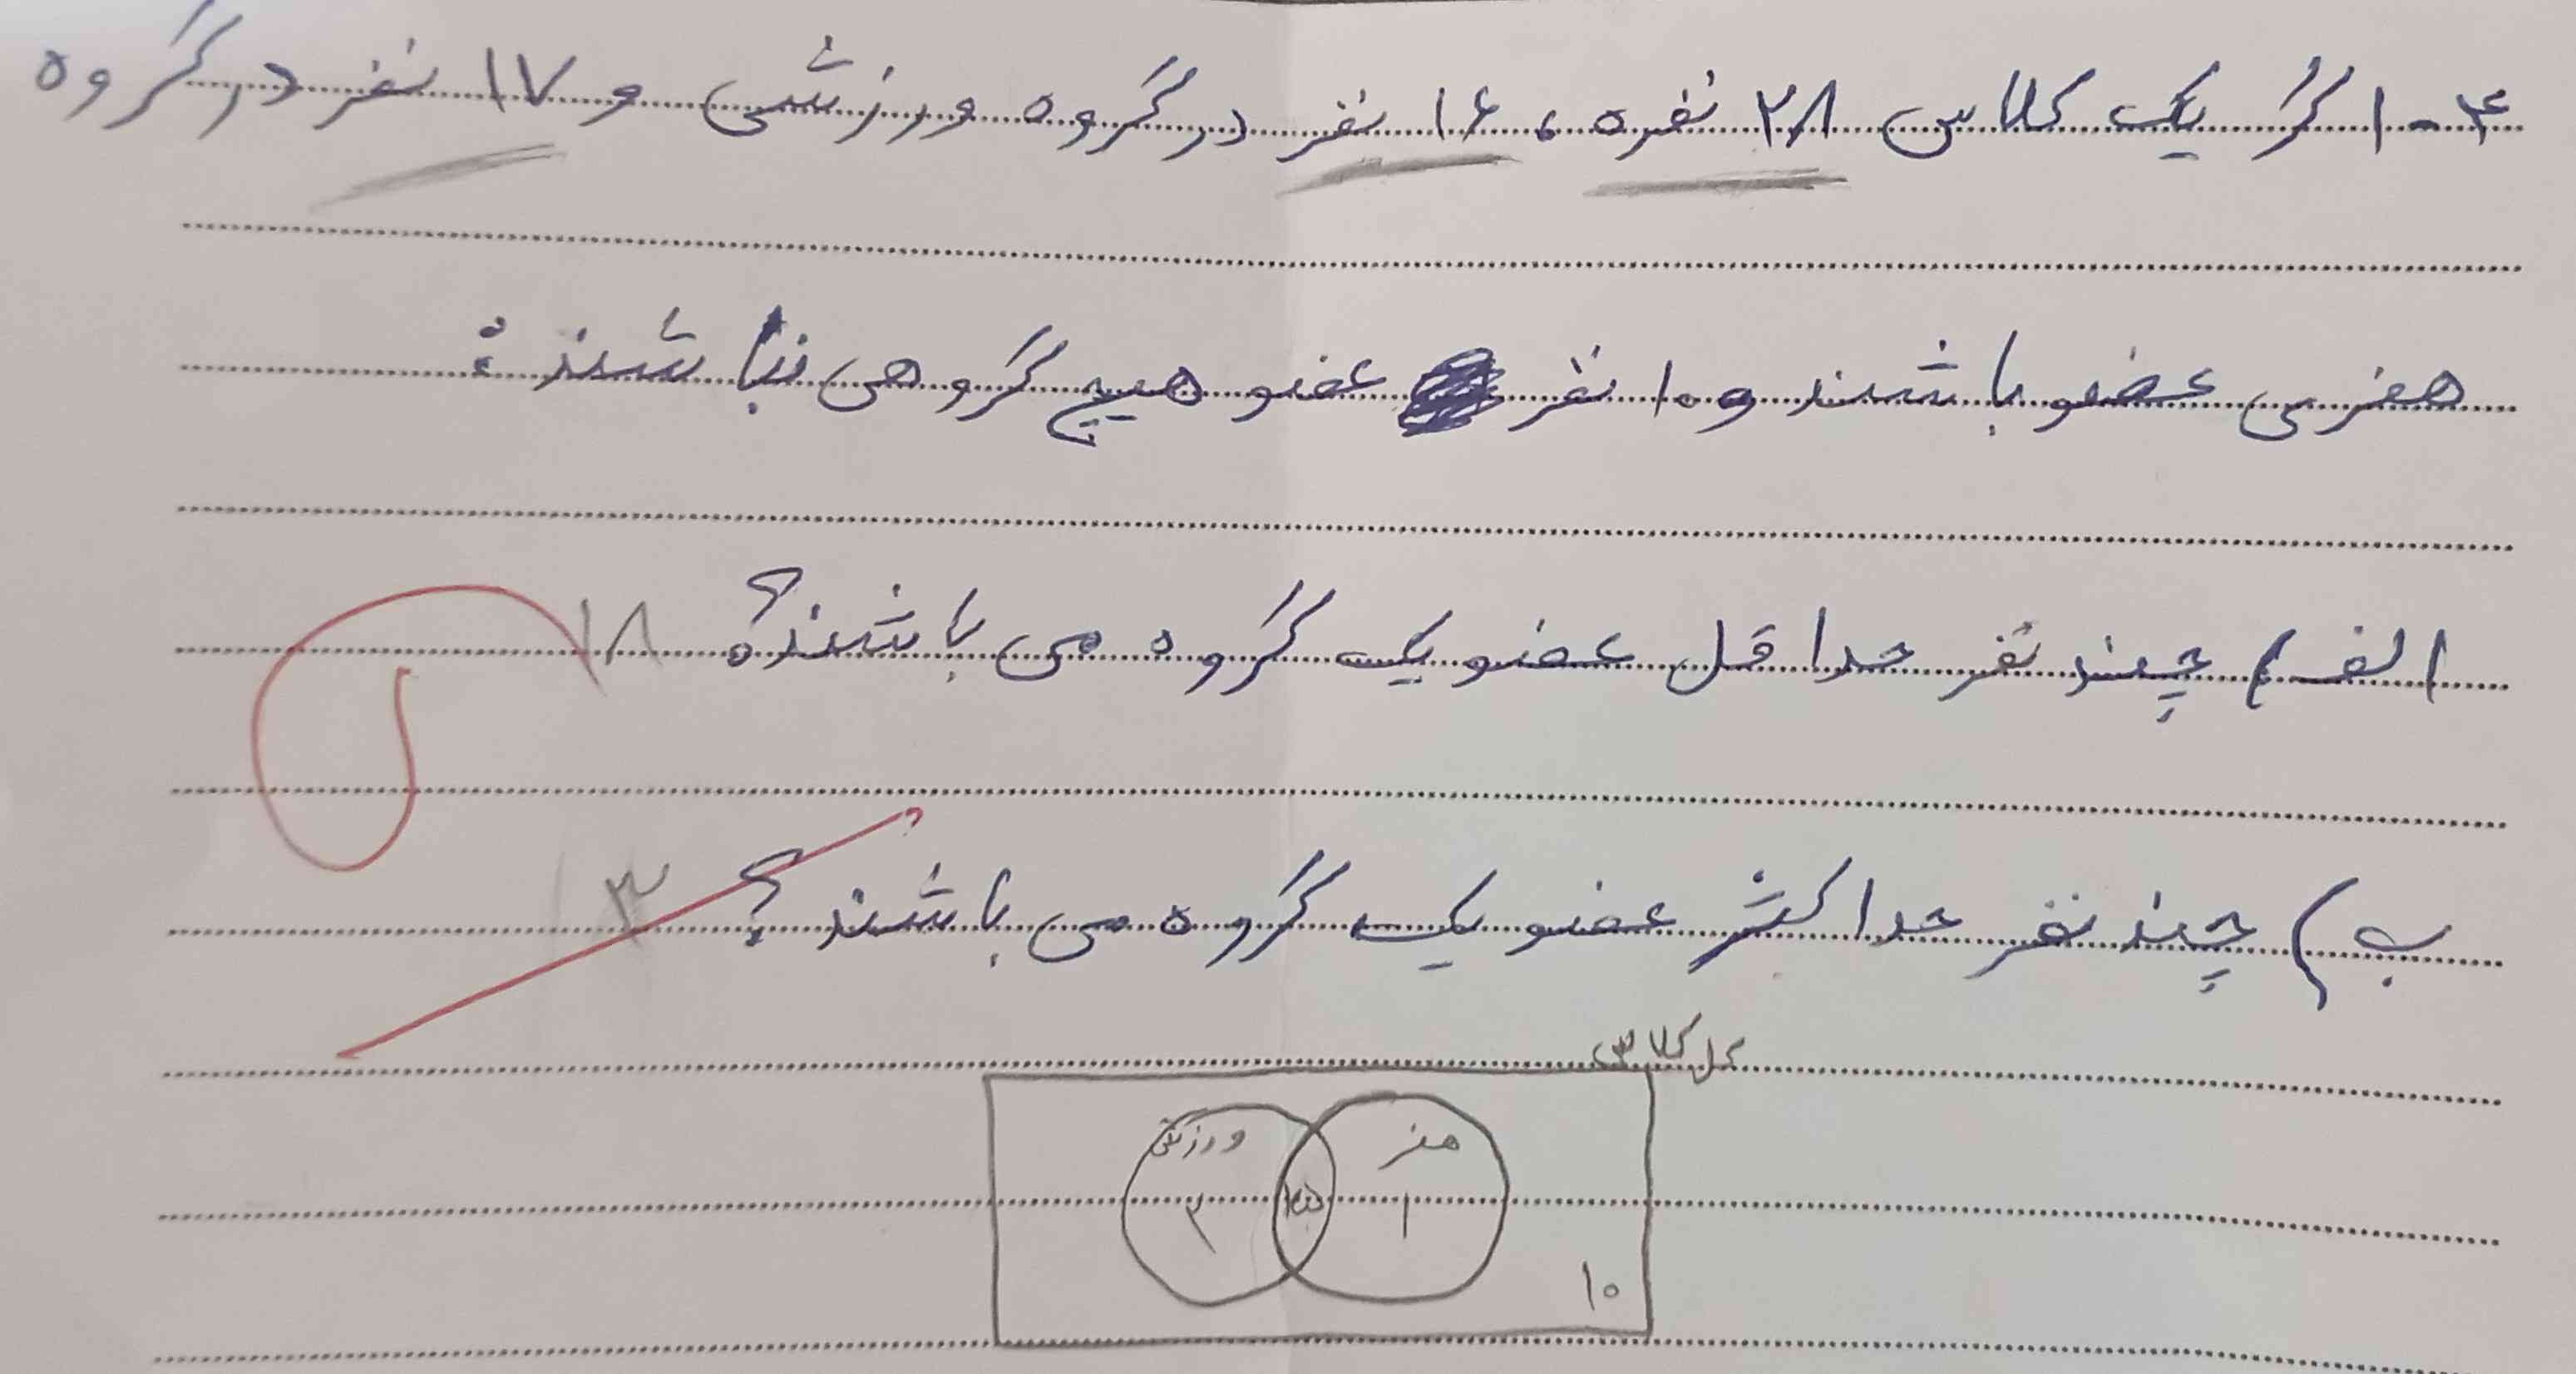 ۴-اگر یک کلاس ۲۸ نفره، ۱۶ نفر در گروه ورزشی و ۱۷ نفر در گروه
هنری عضو باشند و ۱۰ نفر عضو هیچ گروهی نباشند:
الف) چند نفر حداقل عضو یک گروه می باشند؟ ۱۸
ب) چند نفر حداکثر عضو یک گروه می باشند؟ ۳
کل کلاس
هنر ورزشی
۱ ۱۵ ۲
۱۰